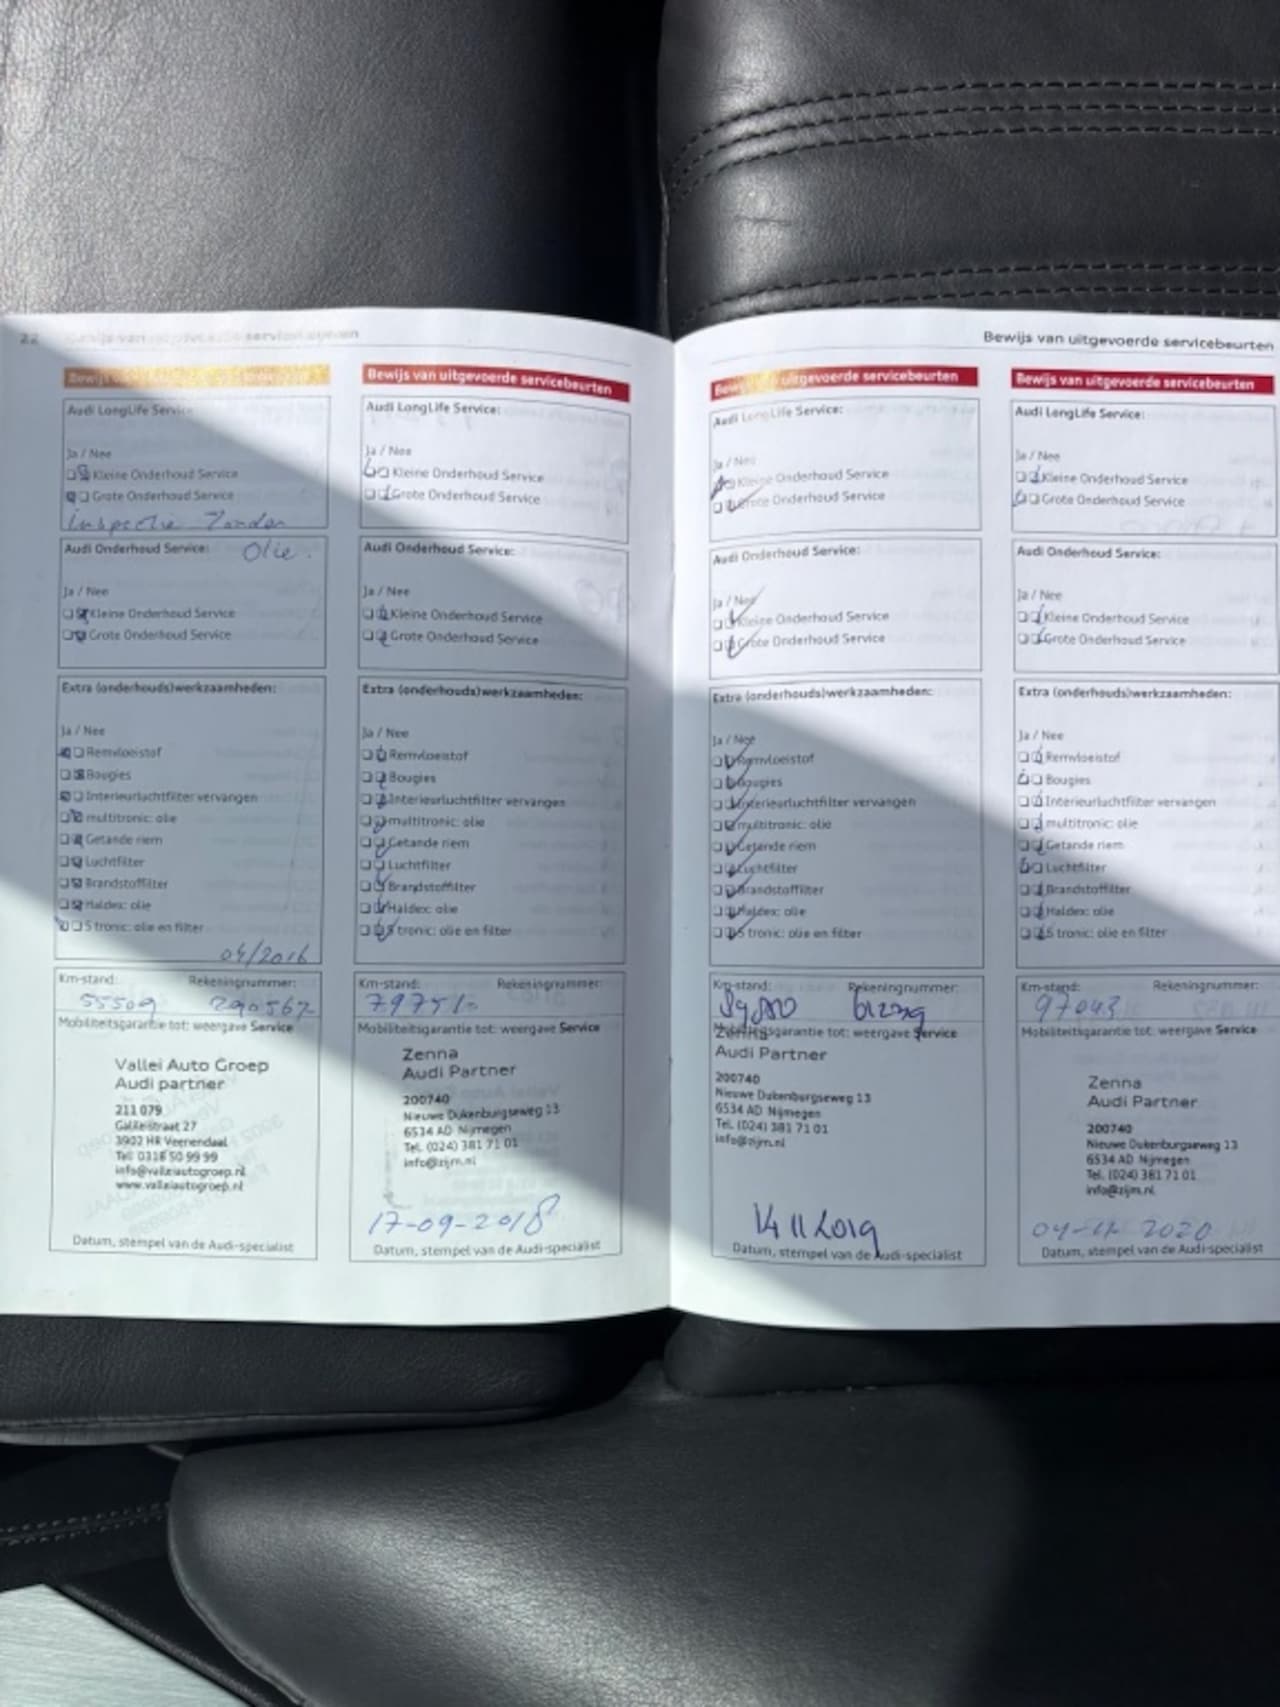 22
Bewijs van uitgevoerde servicebeurten
Audi LongLife Service:
Ja / Nee
Kleine Onderhoud Service
Grote Onderhoud Service
Inspectie Zonder
Olie.
Audi Onderhoud Service:
Ja / Nee
Kleine Onderhoud Service
Grote Onderhoud Service
Extra (onderhouds)werkzaamheden:
Ja / Nee
Remvloeistof
Bougies
Interieurluchtfilter vervangen
multitronic: olie
Getande riem
Luchtfilter
Brandstoffilter
Haldex: olie
S tronic: olie en filter
04/2016
Km-stand: Rekeningnummer:
55509 290567
Mobiliteitsgarantie tot: weergave Service
Vallei Auto Groep
Audi partner
211 079
Galileistraat 27
3902 HR Veenendaal
Tel: 0318 50 99 99
info@valleiautogroep.nl
www.valleiautogroep.nl
Datum, stempel van de Audi-specialist
Bewijs van uitgevoerde servicebeurten
Audi LongLife Service:
Ja / Nee
Kleine Onderhoud Service
Grote Onderhoud Service
Audi Onderhoud Service:
Ja / Nee
Kleine Onderhoud Service
Grote Onderhoud Service
Extra (onderhouds)werkzaamheden:
Ja / Nee
Remvloeistof
Bougies
Interieurluchtfilter vervangen
multitronic: olie
Getande riem
Luchtfilter
Brandstoffilter
Haldex: olie
S tronic: olie en filter
Km-stand: Rekeningnummer:
Mobiliteitsgarantie tot: weergave Service
Zenna
Audi Partner
200740
Nieuwe Dukenburgseweg 13
6534 AD Nijmegen
Tel. (024) 381 71 01
info@zijm.nl
17-09-2018
Datum, stempel van de Audi-specialist
Bewijs van uitgevoerde servicebeurten
Bewijs van uitgevoerde servicebeurten
Audi LongLife Service:
Ja / Nee
Kleine Onderhoud Service
Grote Onderhoud Service
Audi Onderhoud Service:
Ja / Nee
Kleine Onderhoud Service
Grote Onderhoud Service
Extra (onderhouds)werkzaamheden:
Ja / Nee
Remvloeistof
Bougies
Interieurluchtfilter vervangen
multitronic: olie
Getande riem
Luchtfilter
Brandstoffilter
Haldex: olie
S tronic: olie en filter
Km-stand: Rekeningnummer:
Mobiliteitsgarantie tot: weergave Service
Zenna
Audi Partner
200740
Nieuwe Dukenburgseweg 13
6534 AD Nijmegen
Tel. (024) 381 71 01
info@zijm.nl
14 11 2019
Datum, stempel van de Audi-specialist
Bewijs van uitgevoerde servicebeurten
Audi LongLife Service:
Ja / Nee
Kleine Onderhoud Service
Grote Onderhoud Service
Audi Onderhoud Service:
Ja / Nee
Kleine Onderhoud Service
Grote Onderhoud Service
Extra (onderhouds)werkzaamheden:
Ja / Nee
Remvloeistof
Bougies
Interieurluchtfilter vervangen
multitronic: olie
Getande riem
Luchtfilter
Brandstoffilter
Haldex: olie
S tronic: olie en filter
Km-stand: Rekeningnummer:
97043
Mobiliteitsgarantie tot: weergave Service
Zenna
Audi Partner
200740
Nieuwe Dukenburgseweg 13
6534 AD Nijmegen
Tel. (024) 381 71 01
info@zijm.nl
Datum, stempel van de Audi-specialist